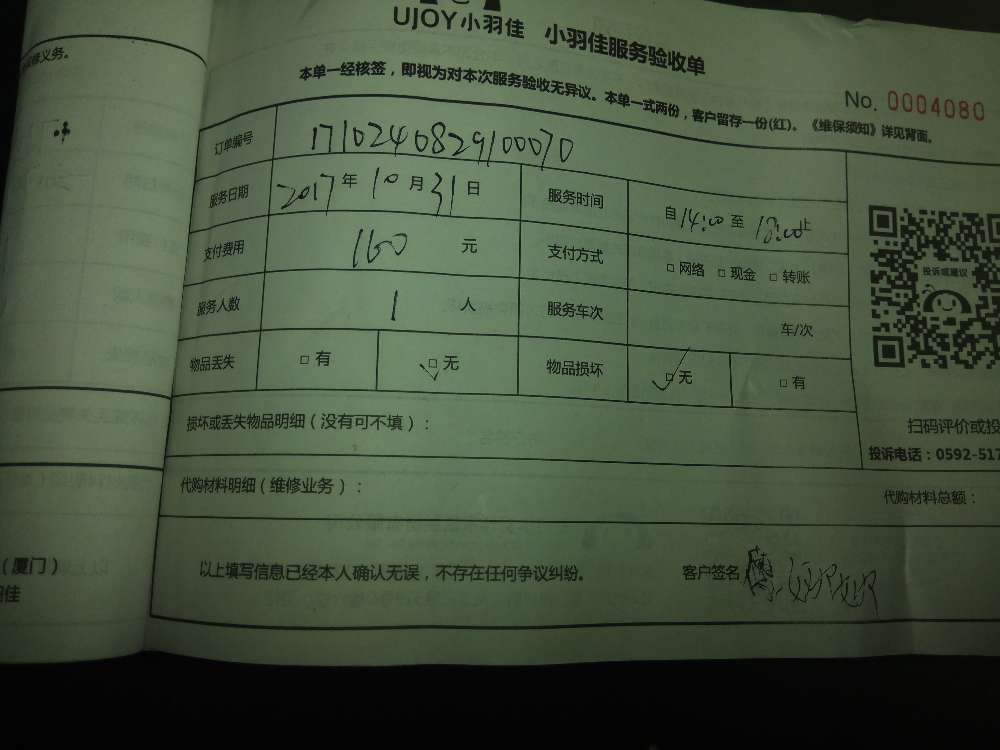 修义务。
UJOY小羽佳 小羽佳服务验收单
本单一经核签，即视为对本次服务验收无异议。本单一式两份，客户留存一份(红)。《维保须知》详见背面。
No. 0004080
订单编号 1710240829100070
服务日期 2017年10月31日 服务时间 自14:00至18:00止
支付费用 160元 支付方式 □网络 □现金 □转账
服务人数 1人 服务车次 车/次
物品丢失 □有 □无 物品损坏 □无 □有
投诉或建议
损坏或丢失物品明细（没有可不填）：
扫码评价或投
投诉电话：0592-517
代购材料明细（维修业务）：
代购材料总额：
以上填写信息已经本人确认无误，不存在任何争议纠纷。
客户签名
（厦门）
羽佳